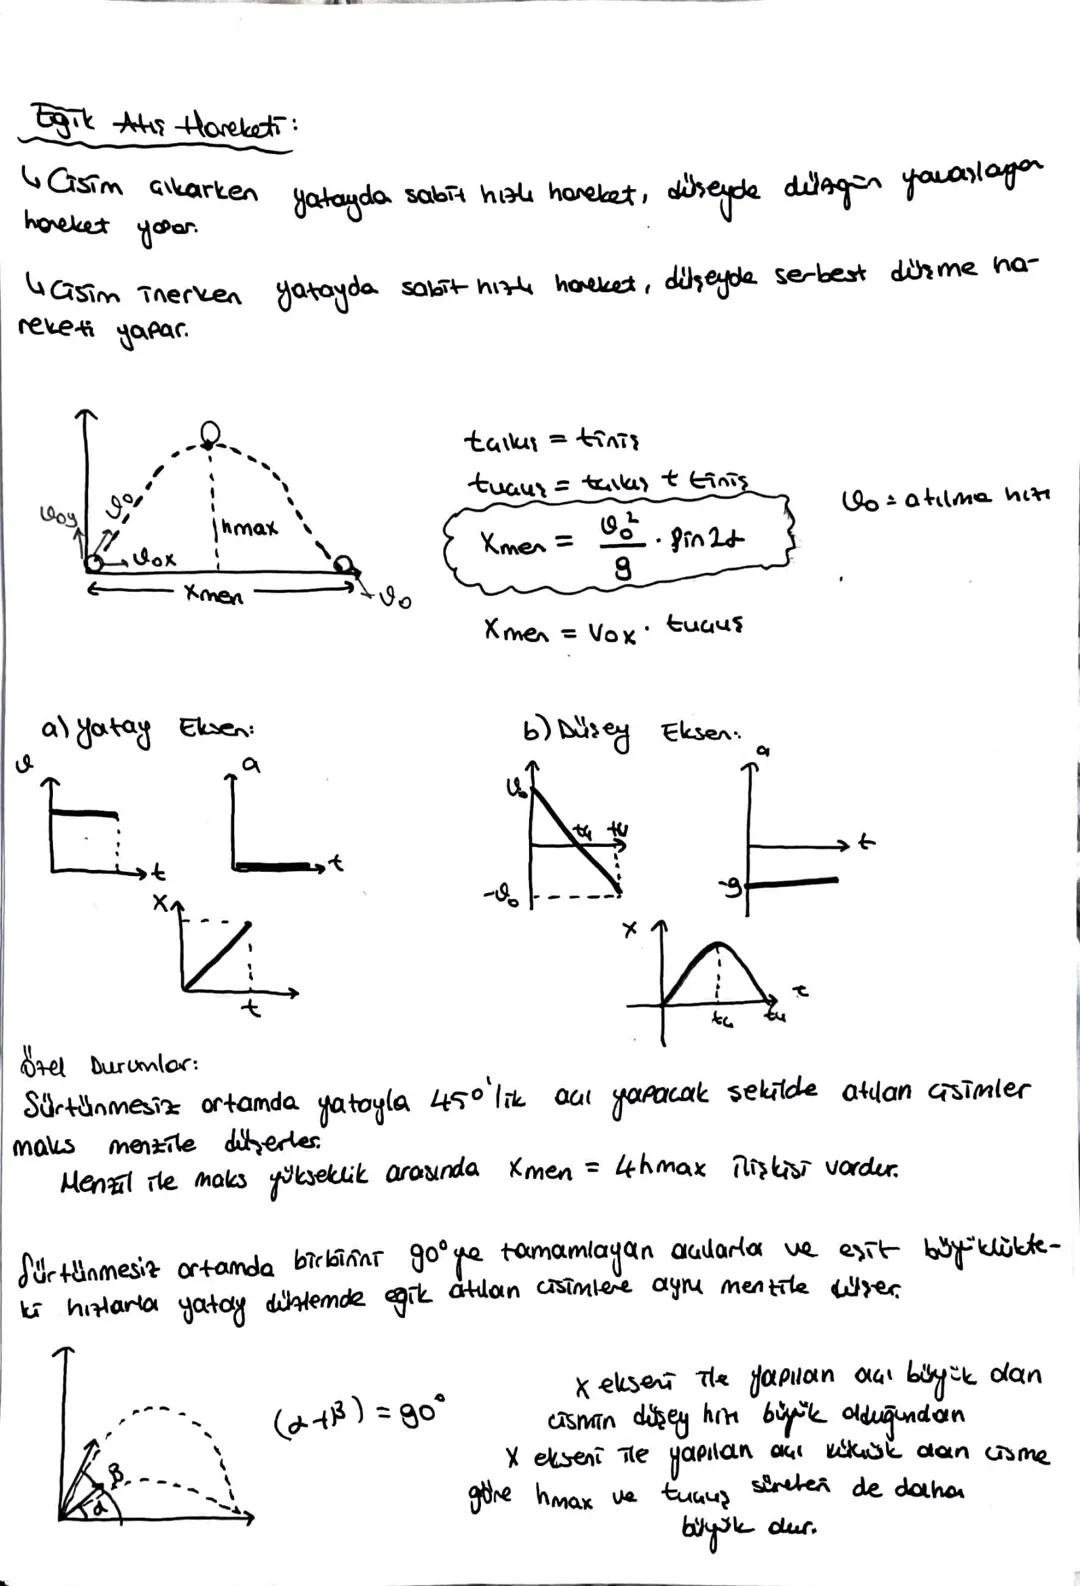 Eğik Atış Hareketi:
↳ Cisim çıkarken yatayda sabit hızlı hareket, düşeyde düzgün yavaşlayan
hareket yapar.
↳ Cisim inerken yatayda sabit hızlı hareket, düşeyde serbest düşme ha-
reketi yapar.
tçıkış = tiniş
tuçuş = tçıkış + tiniş
V₀ = atılma hızı
Xmen = V₀²/g · Sin2α
V₀y V₀ V₀x hmax
Xmen V₀
Xmen = V₀x · tuçuş
a) Yatay Eksen:
b) Düşey Eksen:
V t
a t
X t
V₀ tç tu -V₀
a t -g
X tç tu t
Özel Durumlar:
Sürtünmesiz ortamda yatayla 45°'lik açı yapacak şekilde atılan cisimler
maks menzile düşerler.
Menzil ile maks yükseklik arasında Xmen = 4hmax ilişkisi vardır.
Sürtünmesiz ortamda birbirini 90°ye tamamlayan açılarla ve eşit büyüklükte-
ki hızlarla yatay düzlemde eğik atılan cisimlere aynı menzile düşer.
β α
(α+β) = 90°
X ekseni ile yapılan açı büyük olan
cismin düşey hızı büyük olduğundan
X ekseni ile yapılan açı küçük olan cisme
göre hmax ve tuçuş süreleri de daha
büyük dur.